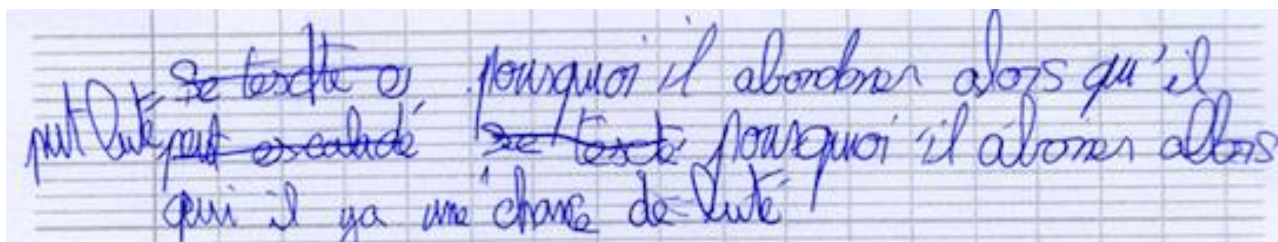 se texte es pourquoi il abondoner alors qu'il
put luté peut escaladé se texte pourquoi il aboner allors
qui il ya une chance de luté